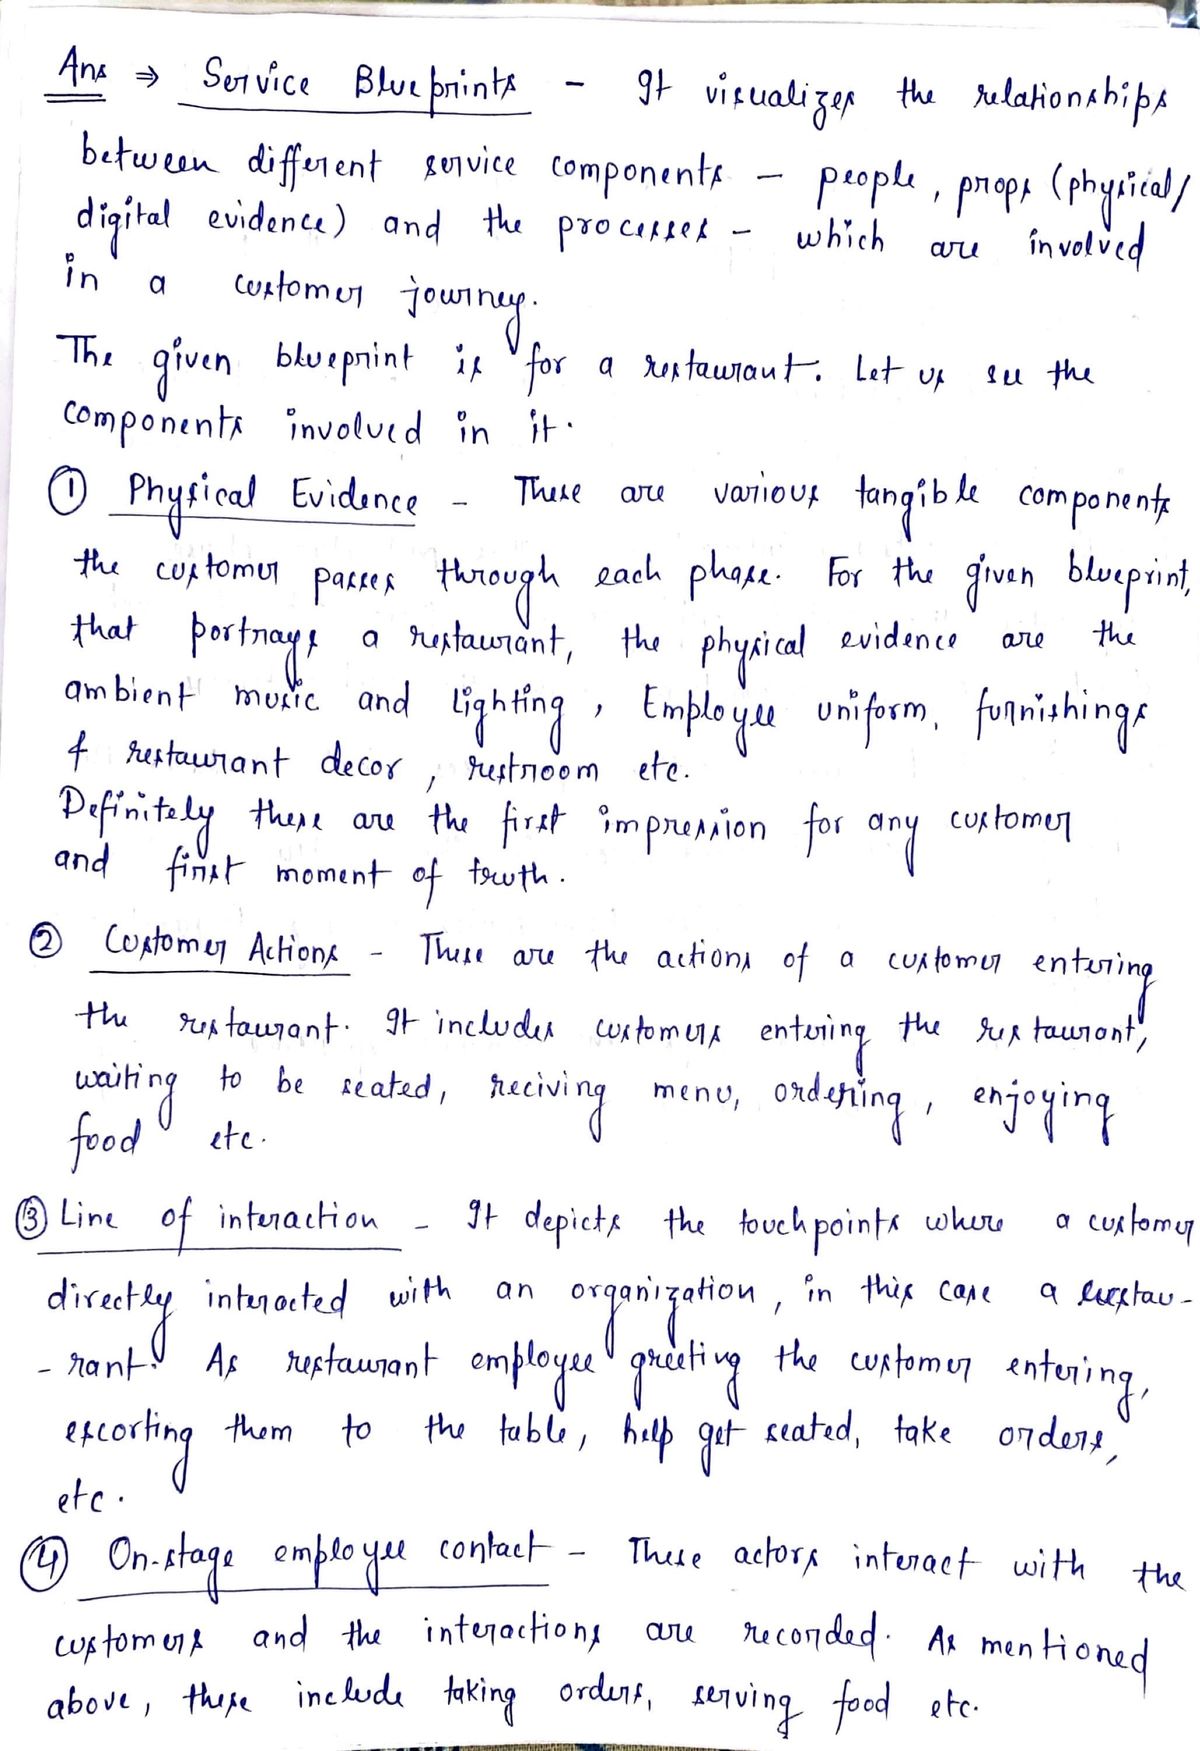 Ans ⇒ Service Blueprints - It visualizes the relationships
between different service components - people, props (physical/
digital evidence) and the processes - which are involved
in a customer journey.
The given blueprint is for a restaurant. Let us see the
components involved in it.
① Physical Evidence - These are various tangible components
the customer passes through each phase. For the given blueprint,
that portrays a restaurant, the physical evidence are the
ambient music and lighting, Employee uniform, furnishings
& restaurant decor, restroom etc.
Definitely these are the first impression for any customer
and first moment of truth.
② Customer Actions - These are the actions of a customer entering
the restaurant. It includes customers entering the restaurant,
waiting to be seated, reciving menu, ordering, enjoying
food etc.
③ Line of interaction - It depicts the touchpoints where a customer
directly interacted with an organization, in this case a restau-
-rant. As restaurant employee greeting the customer entering,
escorting them to the table, help get seated, take orders,
etc.
④ On-stage employee contact - These actors interact with the
customers and the interactions are recorded. As mentioned
above, these include taking orders, serving food etc.